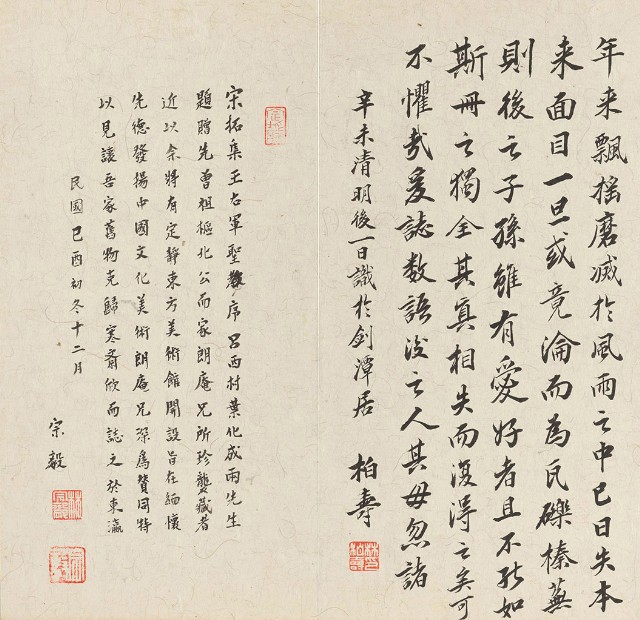 年来飄搖磨滅於風雨之中已日失本
来面目一旦或竟淪而為瓦礫榛蕪
則後之子孫雖有愛好者且不能如
斯冊之獨全其真相失而復得之矣可
不懼哉爰誌数語後之人其毋忽諸
辛未清明後一日識於劍潭居 柏壽
宋拓集王右軍聖教序呂西村葉化成兩先生
題贈先曾祖樞北公而家朗庵兄所珍襲藏者
近以余將有定靜東方美術館開設旨在緬懷
先德發揚中國文化美術朗庵兄深為贊同特
以見讓吾家舊物克歸寒齋欣而誌之於東瀛
民國己酉初冬十二月
宗毅